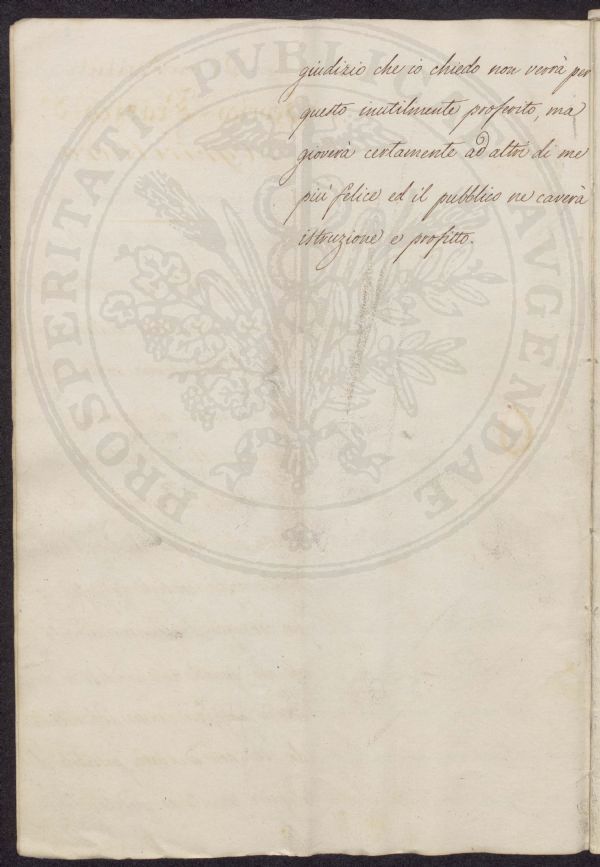 giudizio che io chiedo non verrà per
questo inutilmente proferito, ma
gioverà certamente ad altri di me
più felice ed il pubblico ne caverà
istruzione e profitto.
PROSPERITATI PVBLICAE AVGENDAE